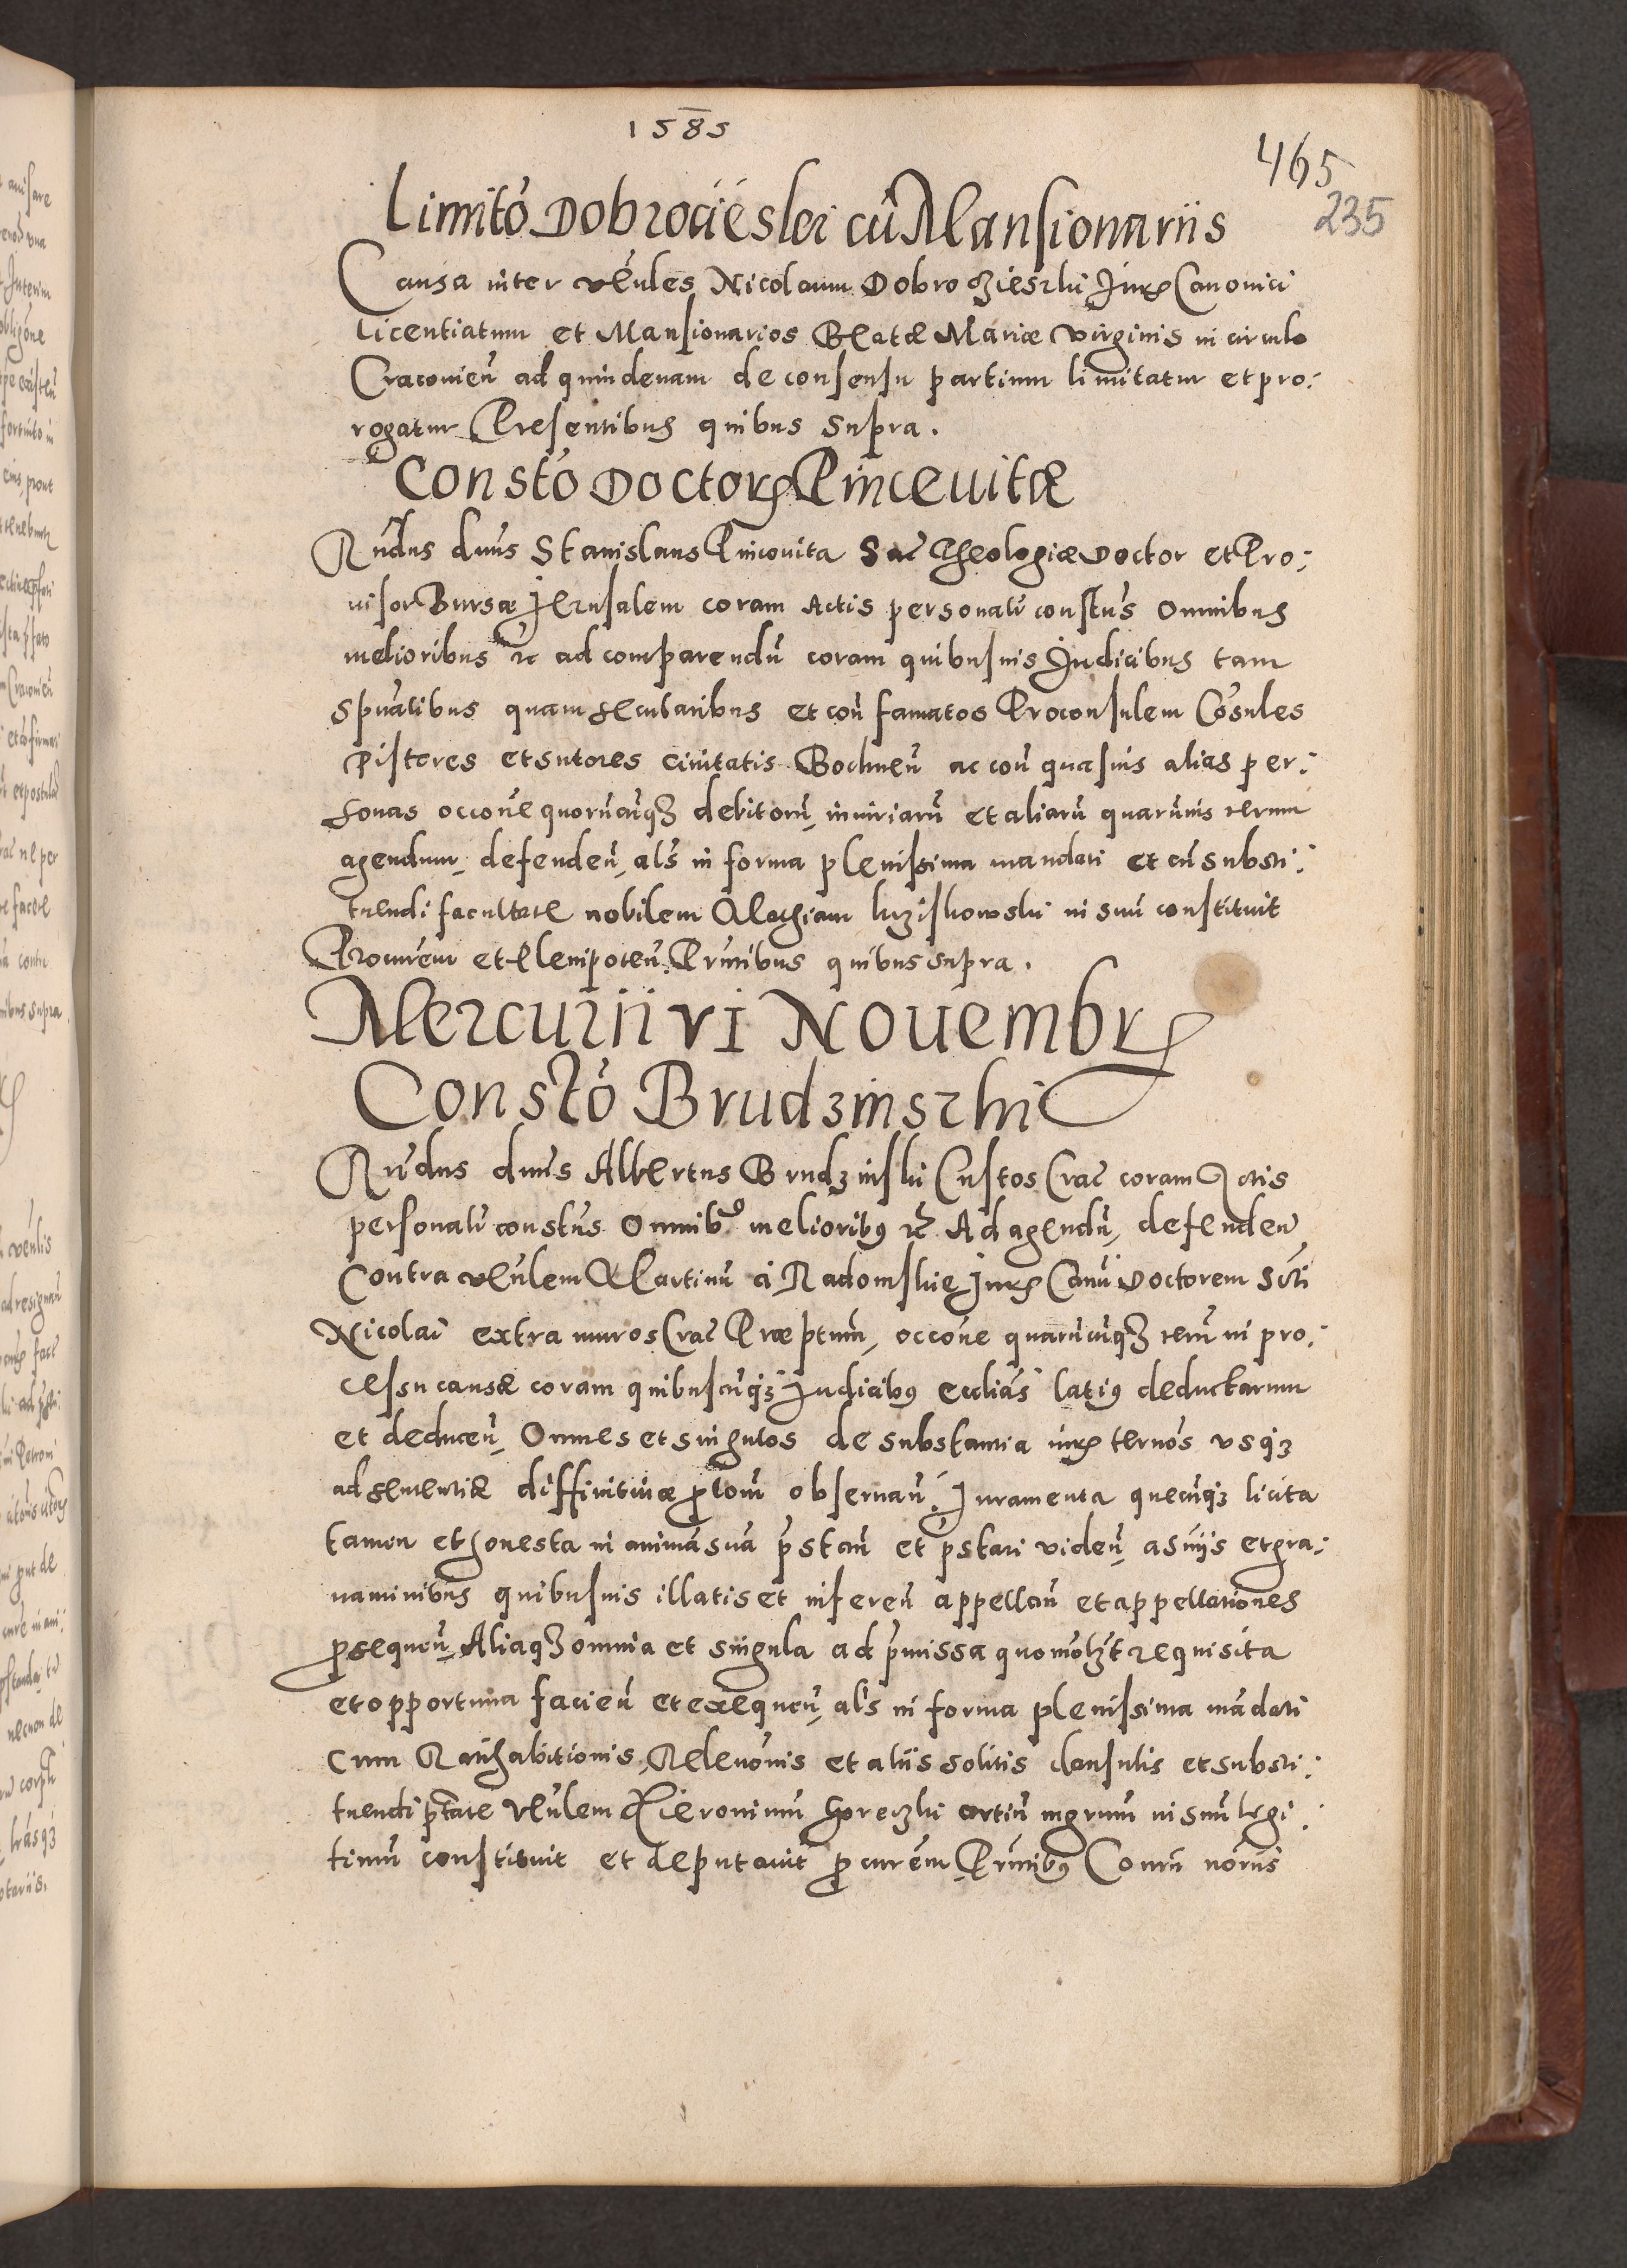 1585
465
235
Limito Dobrocieslei cū Mansionariis
Causa inter vēnles Nicolaum Dobrocziesski Juris Canonici
licentiatum et Mansionarios Beatæ Mariæ virginis in circulo
Cracovieñ ad quindenam de consensu partium limitatur et pro:
rogatur Presentibus quibus supra.
Consto Doctoris Pincevitæ
Rñdus dnus Stanislaus Pincovita Sac Theologiæ Doctor et Pro:
visor Bursæ Jerusalem coram Actis personali constus omnibus
melioribus &c ad comparendū coram quibusvis Judicibus tam
spualibus quam secularibus et con famatos Proconsulem Cōsules
pistores et sutores civitatis Bochneñ ac con quasvis alias per:
sonas occone quorūcūqz debitorū, iniuriarū et aliarū quarūvis rerum
agendum, defendeñ, als in forma plenissima mandati et cū substi:
tuendi facultate nobilem Mathiam in suū constituit
Procurēm et Plenipoteñ. Prñtibus quibus supra.
Mercurii VI Novembris
Consto Brudzinski
Rñdus dnus Albertus Brudzinski Custos Crac coram Actis
personali constus Omnibus melioribus &c Ad agendū, defendeñ
Contra vēnlem Martinū a Radomskie Juris Canū Doctorem Scti
Nicolai extra muros Crac Præptum, occone quarūcūqz rerū in pro:
cessu causæ coram quibuscūqz Judicibus eccliās latius deductarum
et deduceñ, Omnes et singulos de substantia iuris ternos usqz
ad sententiæ diffinitivæ plom observañ. Juramenta quecūqz licita
tamen et honesta in animā suā pstañ et pstari videñ, a sniis et gra:
vaminibus quibusvis illatis et infereñ appellañ et appellationes
psequeñ, Aliaqz omnia et singula ad pmissa quomolzt requisita
et opportuna facieñ et exequeñ, als in forma plenissima mādati
cum Ratihabitionis, Relevonis et aliis solitis clausulis et substi:
tuendi ptate Vēnlem Hieronimū artiū mgrum in suū legi:
timū constituit et deputavit procurēm Prñtibus Comū noriis